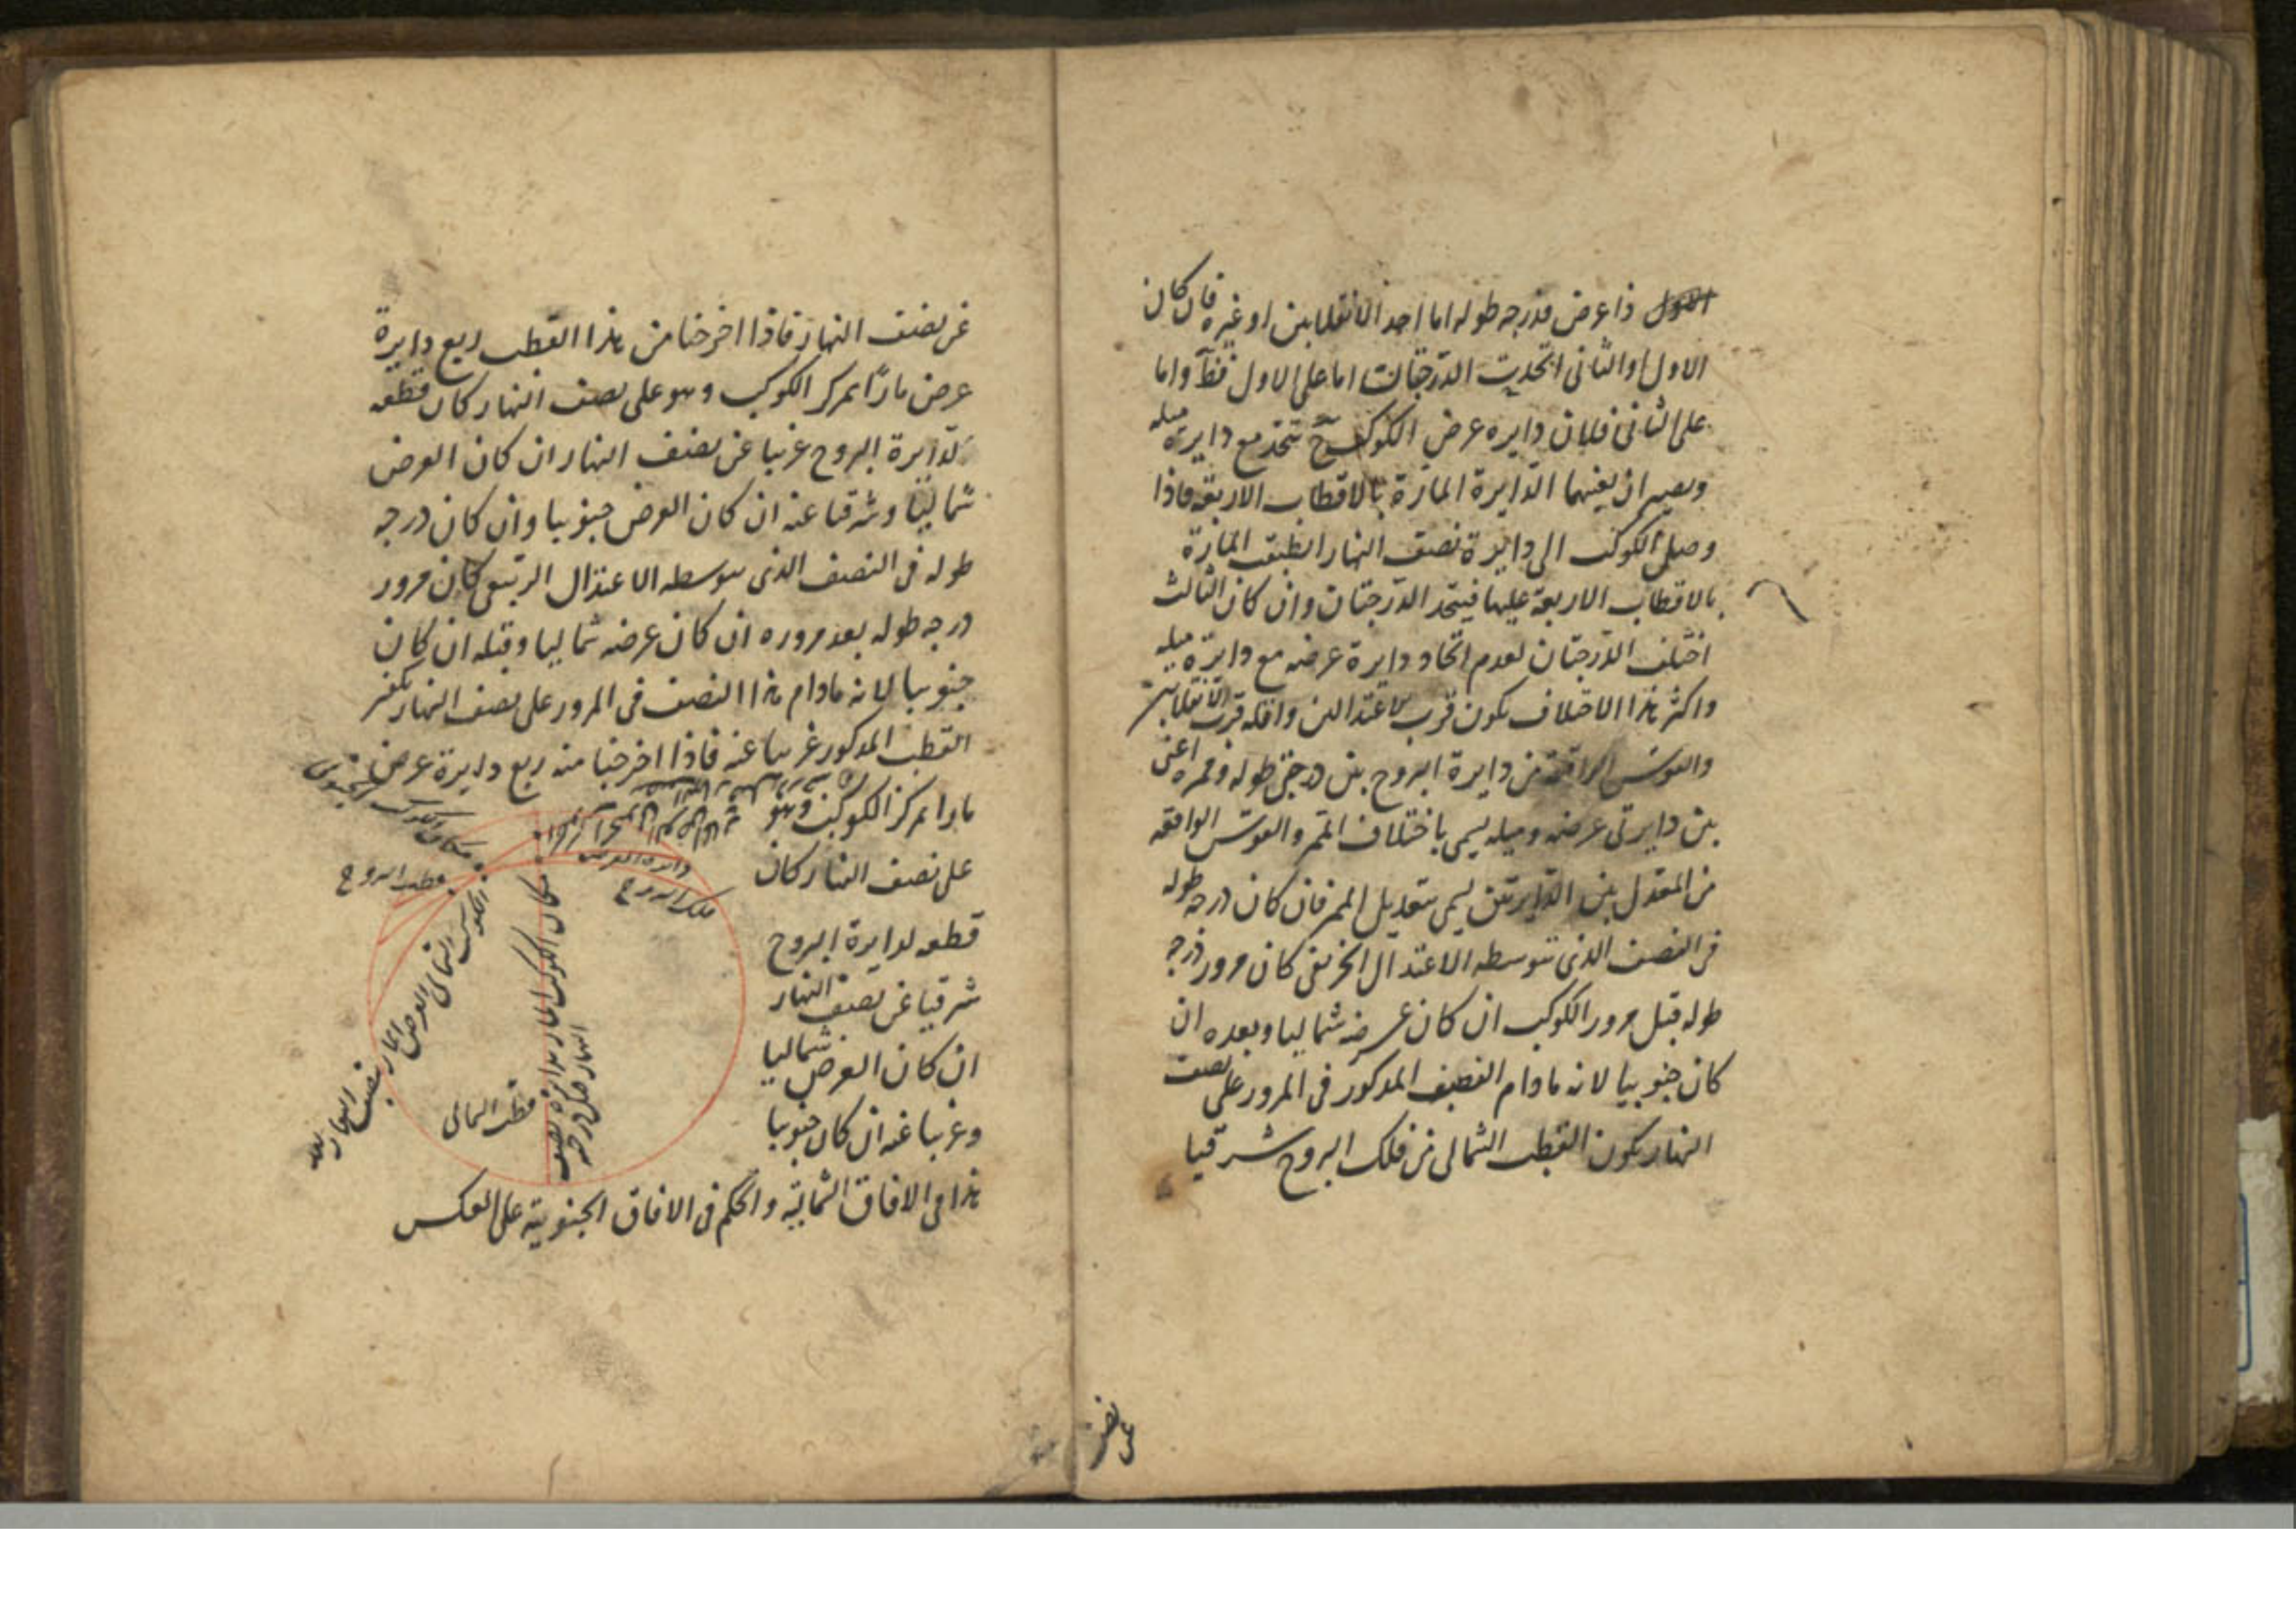 ذا عرض فدرجه طوله اما احد الانقلابين او غيره فان كان
الاول او الثانى اتحدت الدرجتان اما على الاول فظ واما
على الثانى فلان دايره عرض الكوكب ح تتحد مع دايرة ميله
ويصير ان بعينهما الدايرة المارة بالاقطاب الاربعة فاذا
وصل الكوكب الى دايرة نصف النهار انطبقت المارة
بالاقطاب الاربعة عليها فيتحد الدرجتان وان كان الثالث
اختلف الدرجتان لعدم اتحاد دايرة عرضه مع دايرة ميله
واكثر هذا الاختلاف يكون قرب الاعتدالين واقله قرب الانقلابين
والقوس الواقعة من دايرة البروج بين درجتى طوله وممره اعنى
بين دايرتى عرضه وميله يسمى باختلاف الممر والقوس الواقعه
من المعدل بين الدايرتين يسمى بتعديل الممر فان كان درجه طوله
فى النصف الذى يتوسطه الاعتدال الخريفى كان مرور درجه
طوله قبل مرور الكوكب ان كان عرضه شماليا وبعده ان
كان جنوبيا لانه مادام النصف المذكور فى المرور على نصف
النهار يكون القطب الشمالى من فلك البروج شرقيا
عن نصف
عن نصف النهار فاذا اخرجنا من هذا القطب ربع دايرة
عرض مارًا بمركز الكوكب وهو على نصف النهار كان قطعه
لدايرة البروج غربيا عن نصف النهار ان كان العرض
شماليًا وشرقيا عنه ان كان العرض جنوبيا وان كان درجه
طوله فى النصف الذى يتوسطه الاعتدال الربيعى كان مرور
درجه طوله بعد مروره ان كان عرضه شماليا وقبله ان كان
جنوبيا لانه مادام هذا النصف فى المرور على نصف النهار يكون
القطب المذكور غربيا عنه فاذا اخرجنا منه ربع دايرة عرض
مارا بمركز الكوكب وهو
على نصف النهار كان
قطعه لدايرة البروج
شرقيا عن نصف النهار
ان كان العرض شماليا
وغربيا عنه ان كان جنوبيا
هذا فى الافاق الشمالية والحكم فى الافاق الجنوبية على العكس
دايره العرض
فلك البروج
قطب البروج
مكان الكوكب الجنوبى
مكان الكوكب المار بدايرة نصف
النهار قبل درجته
قطب الشمالى